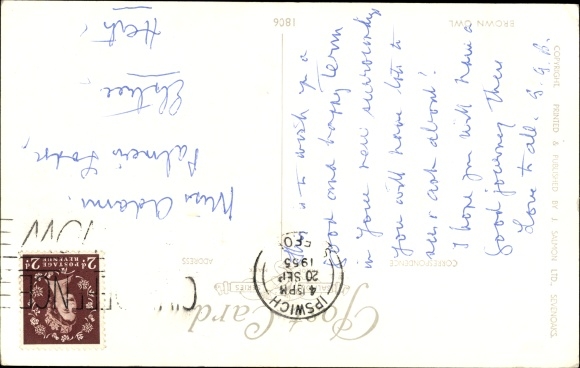 BROWN OWL
1806
Post Card
SALMON SERIES
CORRESPONDENCE
ADDRESS
COPYRIGHT. PRINTED & PUBLISHED BY J. SALMON LTD., SEVENOAKS.
IPSWICH
4 15 PM
20 SEP
1955
2D POSTAGE REVENUE 2D
is to wish you a
good and happy term
in your new surroundings
you will have lots to
see & ask about!
I hope you will have a
good journey there
Love to all. G.G.B.
Miss Adams.
Palmer's Lodge,
Elstree,
Herts,